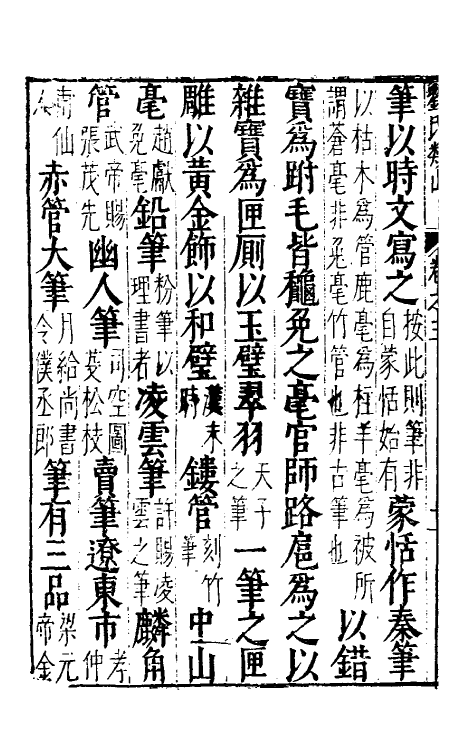 筆以時文寫之按此則筆非自蒙恬始有蒙恬作秦筆
以枯木為管鹿毫為柱羊毫為被所謂蒼毫非兔毫竹管也非古筆也以錯
寶為跗毛皆龝兔之毫官師路扈為之以
雜寶為匣厠以玉璧翠羽天子之筆一筆之匣
雕以黃金飾以和璧漢末時鏤管刻竹筆中山
毫趙獻兔毫鉛筆粉筆以理書者凌雲筆許賜凌雲之筆麟角
管武帝賜張茂先幽人筆司空圖芟松枝賣筆遼東市李仲
仙赤管大筆月給尚書令僕丞郎筆有三品梁元帝金